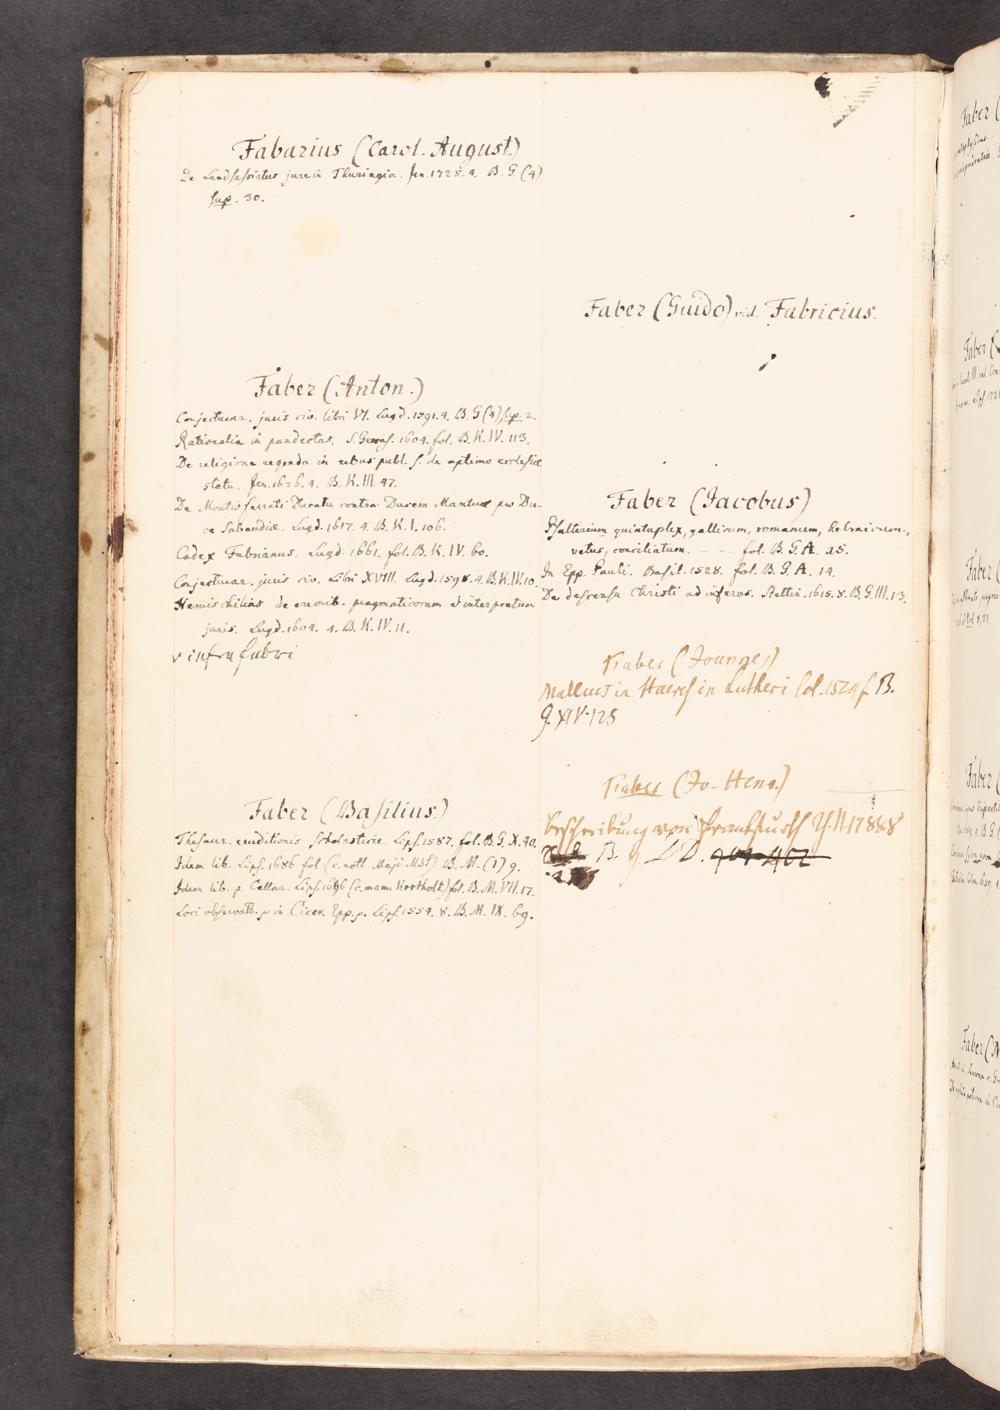 Fabarius (Carol. August.)
De Landsassiatus jure in Thuringia. Jen. 1725. 4. B. G. (4)
sup. 30.
Faber (Anton.)
Conjecturar. juris civ. libri VI. Lugd. 1591. 4. B. G (4) sup. 2.
Rationalia in pandectas. S. Gervas. 1604. fol. B. K. IV. 113.
De religione regenda in rebus publ. s. de optimo ecclesiae
statu. Jen. 1626. 4. B. K. III. 47.
De Montisferrati Ducatu contra Ducem Mantuae pro Du-
ce Sabaudiae. Lugd. 1617. 4. B. K. I. 106.
Codex Fabrianus. Lugd. 1661. fol. B. K. IV. 60.
Conjecturar. juris civ. Libri XVIII. Lugd. 1598. 4. B. K. IV. 10.
Hemischilias de errorib. pragmaticorum et interpretum
juris. Lugd. 1604. 4. B. K. IV. 11.
v infra fabri
Faber (Basilius.)
Thesaur. eruditionis scholasticae. Lips. 1587. fol. B. G. X. 40.
Idem lib. Lips. 1686 fol (c. nott. Maji Mst) B. M. (1) 9.
Idem lib. p. Cellar. Lips. 1696 (c. manu Kortholt) fol. B. M. VII. 17.
Loci observatb. p in Cicer. Epp. p. Lips. 1554. 8. B. M. IX. 69.
Faber (Guido) vid. Fabricius.
Faber (Jacobus)
Psalterium quintuplex, gallicum, romanum, hebraicum,
vetus, conciliatum. - - - fol. B. G. A. 25.
In Epp. Pauli. Basil. 1528. fol. B. G. A. 14.
De descensu Christi ad inferos. Stettin. 1615. 8. B. G. III. 13.
Faber (Joannes)
Malleus in Haeresin Lutheri Col. 1524 f. B.
G. XIV. 125
Faber (Jo-Henr.)
Beschreibung von Franckfurth
B. G. 402